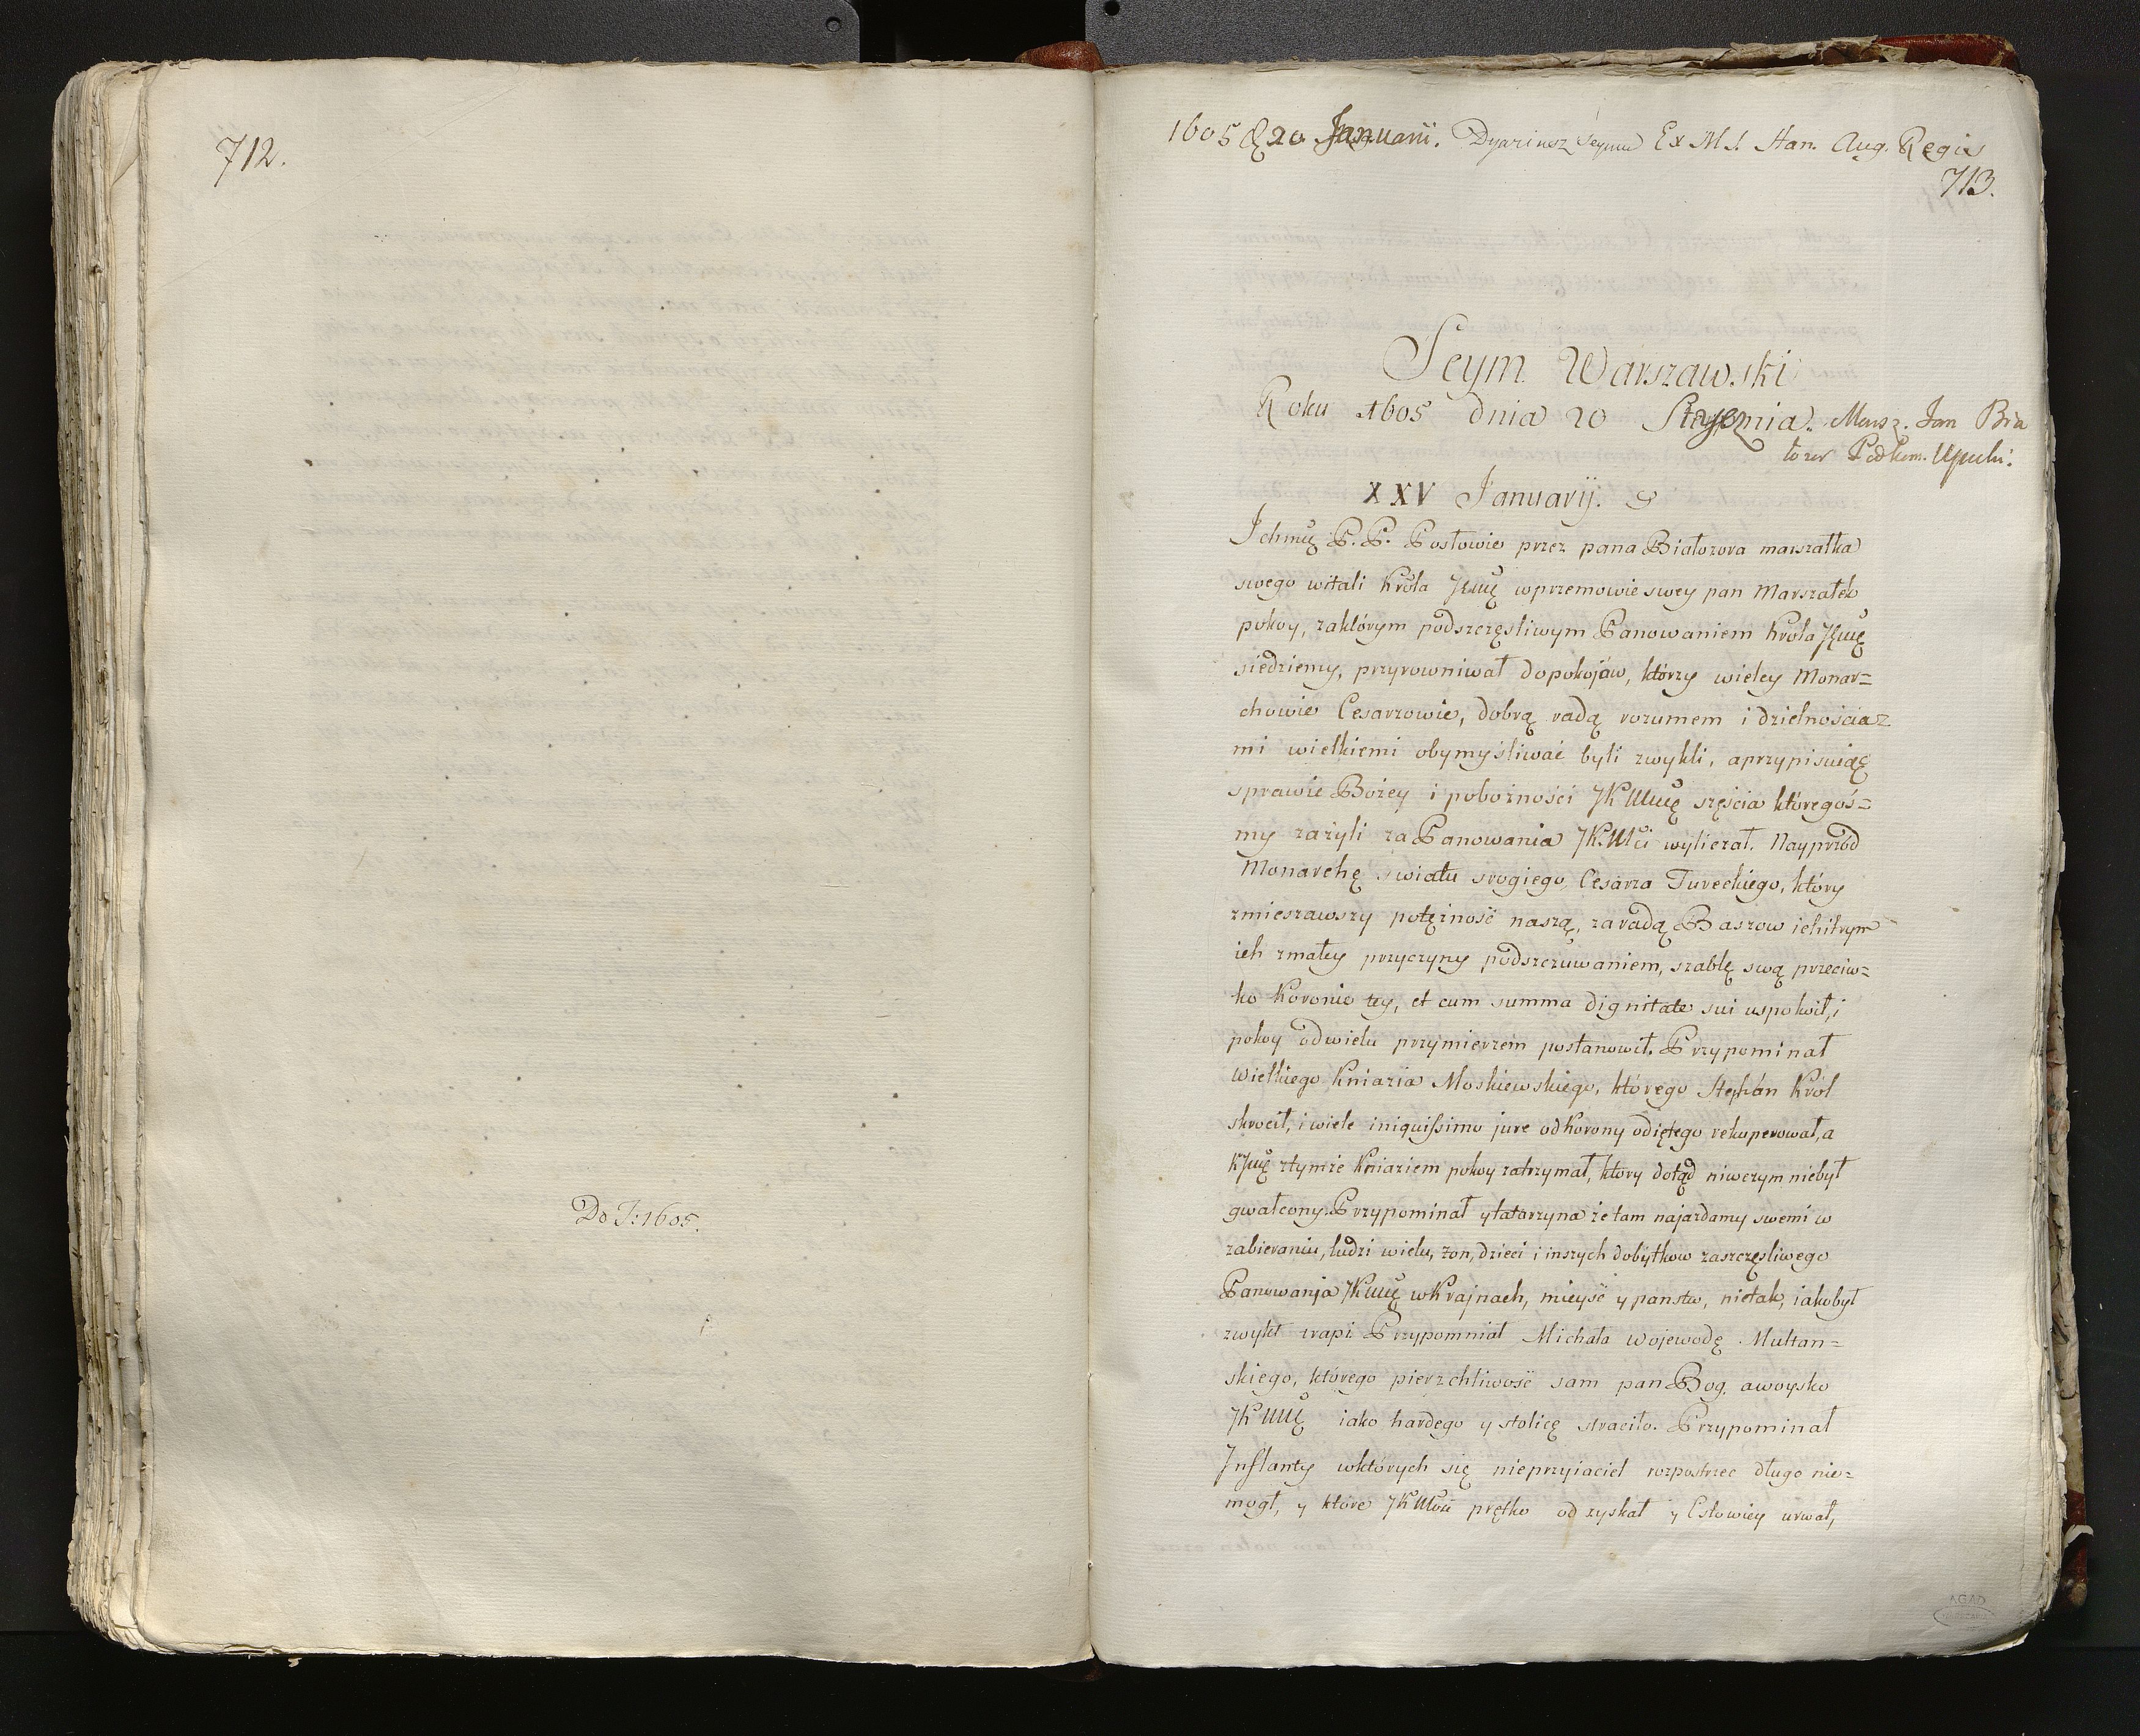 712.
Do I: 1605.
1605 d 20 Januarii. Dyariusz Seymu Ex M.S. Stan. Aug. Regis
713.
Seym Warszawski
Roku 1605 dnia 20 Stycznia. Marsz. Jan Bia
łozor Podkom. Upucki.
XXV Januarij.
Ichmć P.P. Posłowie przez pana Białozora marszałka
swego witali Króla Jmć wprzemowie swey pan Marszałek
pokoy, zaktórym podszczęsliwym Panowaniem Króla Jmć
siedziemy, przyrowniwał dopokojów, którzy wielcy Monar=
chowie Cesarzowie, dobrą radą rozumem i dzielnościa=
mi wielkiemi obymyśliwać byli zwykli, aprzypisuiąc
sprawie Bożey i pobożności JKMć szęścia któregoś=
my zażyli za Panowania JKMci wyliczał. Nayprzód
Monarchę światu srogiego, Cesarza Tureckiego, który
zmieszawszy potężność naszą, zaradą Baszow ichitrym
ich zmałey przyczyny podszczuwaniem, szablę swą przeciw=
ko Koronie tey, et cum summa dignitate sui uspokoił, i
pokoy odwielu przymierzem postanowił. Przypominał
Wielkiego Kniazia Moskiewskiego, którego Stephán Król
skrocił, i wiele iniquissimo jure odKorony odiętego rekuperował, a
KJmć ztymże Kniaziem pokoy zatrzymał, ktory dotąd niwczym niebył
gwałcony. Przypominał y tatarzyna że tam najazdamy swemi w
zabieraniu, ludzi wielu, żon, dzieci i inszych dobytkow zaszczęsliwego
Panowanja JKMć wKrajnach, mieysć y panstw, nietak, iakobył
zwykł trapi Przypomniał Michała wojewodę Multan=
skiego, którego pierzchliwość sam pan Bog, awoysko
JKMć iako hardego y stolicę straciło. Przypominał
Inflanty wktórych się nieprzyiaciel rozpostrzec długo nie=
mogł, y które JKMść prętko odzyskał y Estowiey urwał,
AGAD